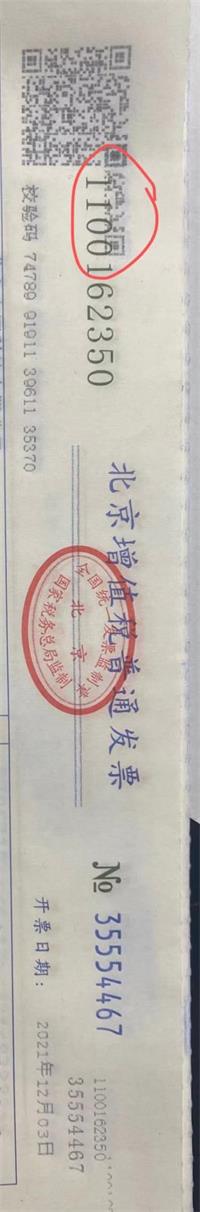 1100162350
校验码 74789 91911 39611 35370
北京增值税普通发票
全国统一发票监制章
北京
国家税务总局监制
№ 35554467
1100162350
35554467
开票日期： 2021年12月03日